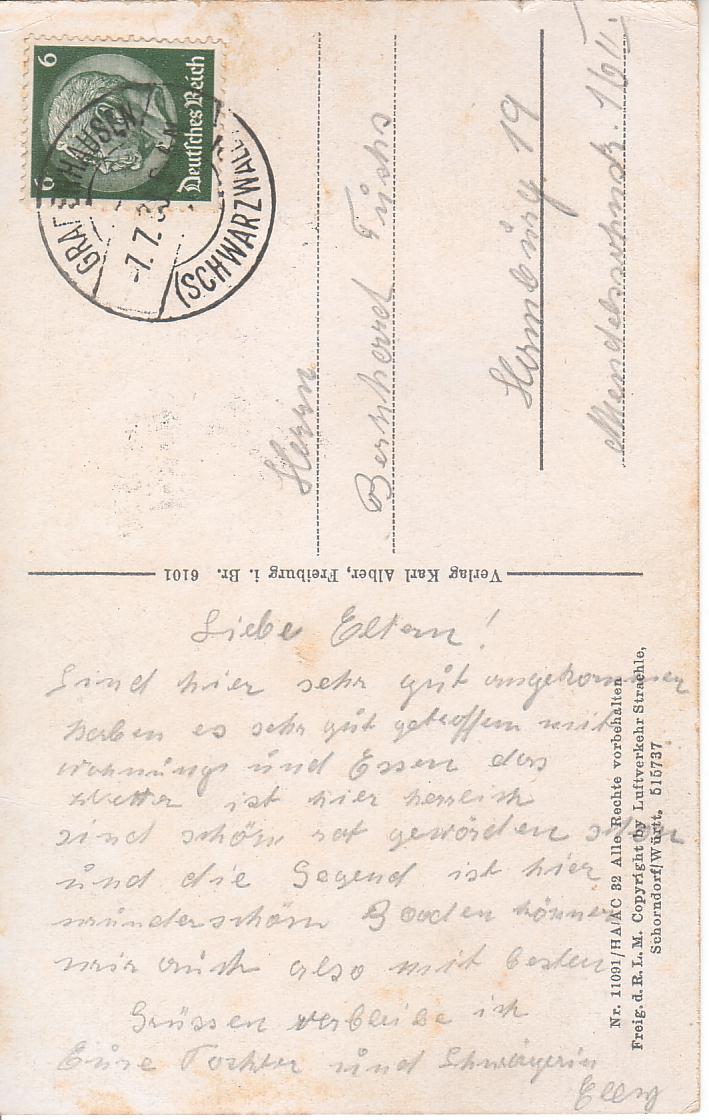 Deutsches Reich
6
6
GRAFENHAUSEN
(SCHWARZWALD)
1.7.3
Herrn
Bernhard Fuchs
Hamburg 19
Mendelssohnstr. 16 II.
Verlag Karl Alber, Freiburg i. Br. 6101
Liebe Eltern!
Sind hier sehr gut angekommen
haben es sehr gut getroffen mit
Wohnung und Essen das
Wetter ist hier herrlich
sind schön rot geworden schon
und die Gegend ist hier
wunderschön Baaden können
wir auch also mit besten
Grüssen verbleibe ich
Eure Tochter und Schwägerin
Elly
Nr. 11091/HA/AC 32 Alle Rechte vorbehalten
Freig. d. R. L. M. Copyright by Luftverkehr Straehle,
Schorndorf/Württ. 515737